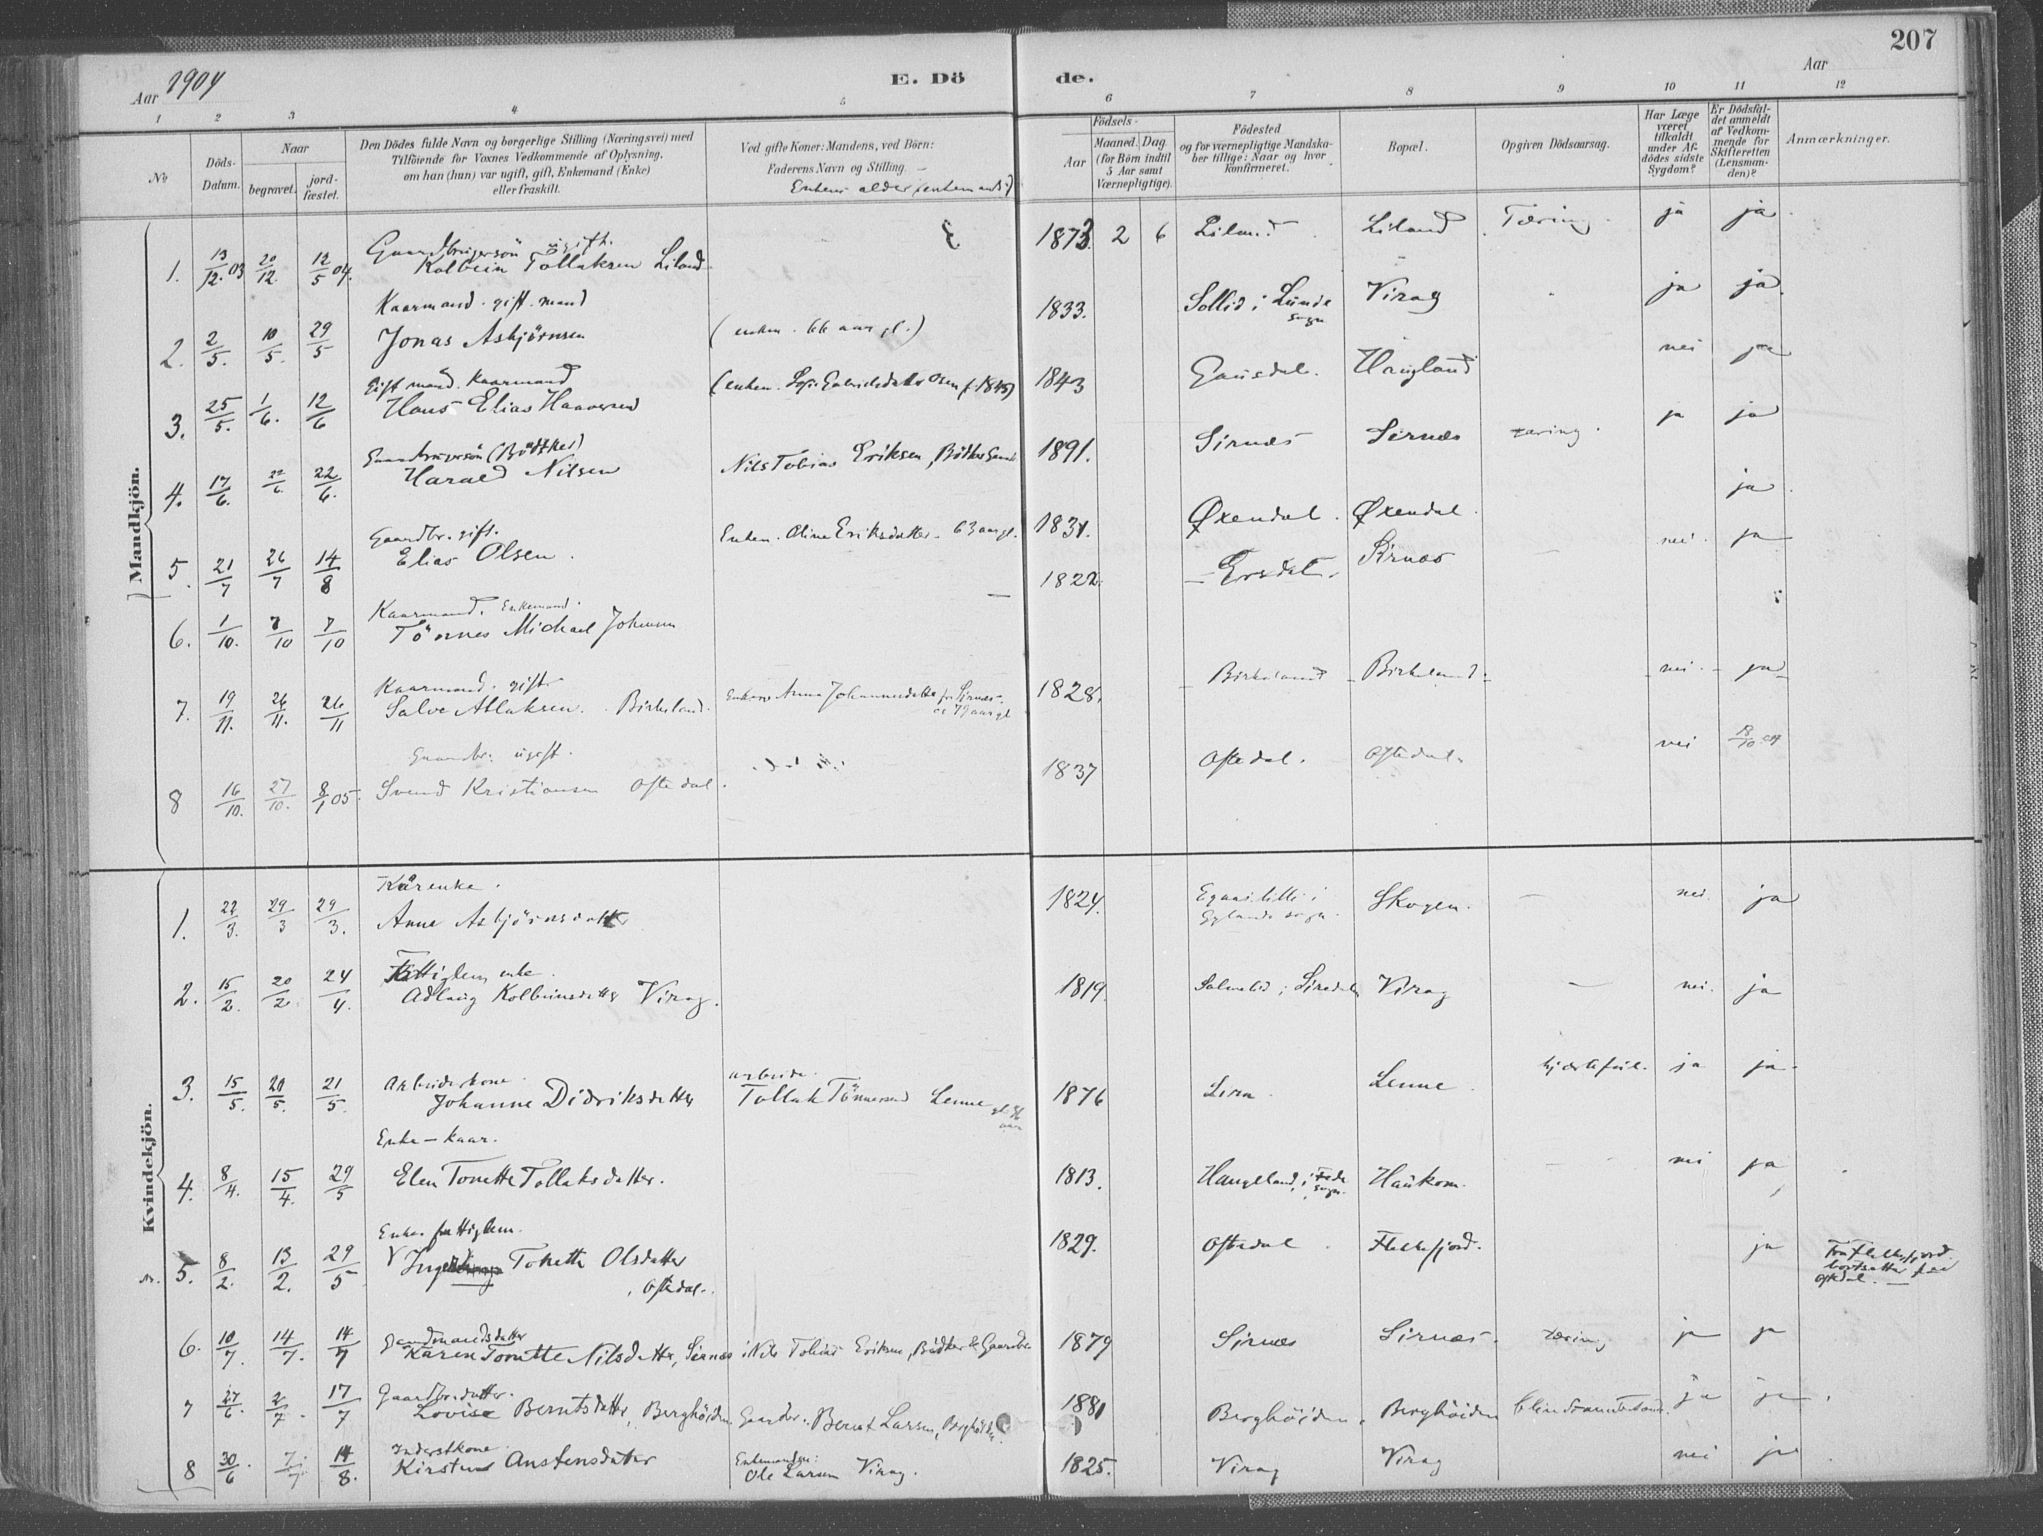 207
Aar 1904
E. Döde.
Aar
1 2 3 4 5 6 7 8 9 10 11 12
No
Döds-Datum.
Naar
begravet.
jord-fæstet.
Den Dödes fulde Navn og borgerlige Stilling (Næringsvei) med
Tilföiende for Voxnes Vedkommende af Oplysning,
om han (hun) var ugift, gift, Enkemand (Enke)
eller fraskilt.
Ved gifte Koner: Mandens, ved Börn:
Faderens Navn og Stilling.
Enkens alder (enkemands)
Födsels-
Aar
Maaned. Dag.
(for Börn indtil 5 Aar samt Værnepligtige).
Födested
og for værnepligtige Mandskaber tillige: Naar og hvor konfirmeret.
Bopæl.
Opgiven Dödsaarsag.
Har Læge været tilkaldt under Afdödes sidste Sygdom?
Er Dödsfaldet anmeldt af Vedkommende for Skifteretten (Lensmanden)?
Anmærkninger.
Mandkjön.
1. 13/12.03 20/12. 12/5 04. Gaardbrugersön ugift. Kolbein Tollaksen Liland 1873 2 6 Liland Liland Tæring. ja ja
2. 2/5. 10/5. 29/5 Kaarmand. gift. mand Jonas Asbjörnsen (enken. 66 aar gl.) 1833. Sollid i Lunde sogn Virag ja ja
3. 25/5. 1/6. 12/6 Gift mand. Kaarmand Hans Elias Haaversen 1843 Gausdal. Haugland nei ja
4. 17/6. 22/6. 22/6. Harald Nilsen Nils Tobias Eriksen, Bödker 1891. Sirnæs Sirnæs tæring. ja ja
5. 21/7 26/7 14/8 Gaardbr. gift. Elias Olsen. Enken. Oline Eriksdatter 63 aar gl. 1831. Øxendal. Øxendal. ja
6. 1/10. 7/10 7/10 Kaarmand. Enkemand. Tönnes Michael Johnsen 1822. Ersdal. Sirnæs nei. ja
7. 19/11. 26/11. 26/11 Kaarmand. gift. Salve Atlaksen. Birkeland. Enkens Anna fra Sirnæs 1828. Birkeland Birkeland. nei. ja
8 16/10. 27/10. 8/1 05. Gaardbr. ugift. Svend Kristiansen Oftedal. 1837 Oftedal. Oftedal. nei 18/10 04
Kvindekjön.
1. 22/3. 29/3 29/3. Kårenke. Anne Asbjörnsdatter 1824. Gylands sogn. Skogen. nei. ja
2. 15/2. 20/2. 24/4. Fattiglem, enke. Adlaug Kolbeinsdatter Virag. 1819. Salmelid i Siredal Virag nei. ja
3. 15/5. 20/5. 21/5. Arbeiderkone. Johanne Didriksdatter Arbeider. Tollak Tönnesen Lenne 1876 Lenne. hjærtefeil. ja ja.
Enke – kaar.
4. 8/4. 15/4. 29/5 Elen Tonette Tollaksdatter. 1813. Haugeland, i Feda sogn. Haukom. nei ja
Enke fattiglem.
5. 8/2. 13/2. 29/5 Inger Tonette Olsdatter Oftedal. 1829. Oftedal. Flekkefjord. ja Fra Flekkefjord. bortsatter paa Oftedal.
6. 10/7. 14/7. 14/7 Gaardmandsdatter Karen Tonette Nilsdatter, Sirnæs Nils Tobias Eriksen, Bödker & Gaardbr. 1879 Sirnæs Sirnæs. tæring ja ja
7 27/6. 2/7. 17/7 Gaardbr. datter. Lovise Berntsdatter, Berghöiden. Gaardbr. Bernt Larsen, Berghöiden 1881 Berghöiden. Berghöiden ja ja
8 30/6. 7/7 14/8. Inderstkone. Kirsten Anstensdatter Enkemanden: Ole Larsen Virag. 1825. Virag Virag nei ja